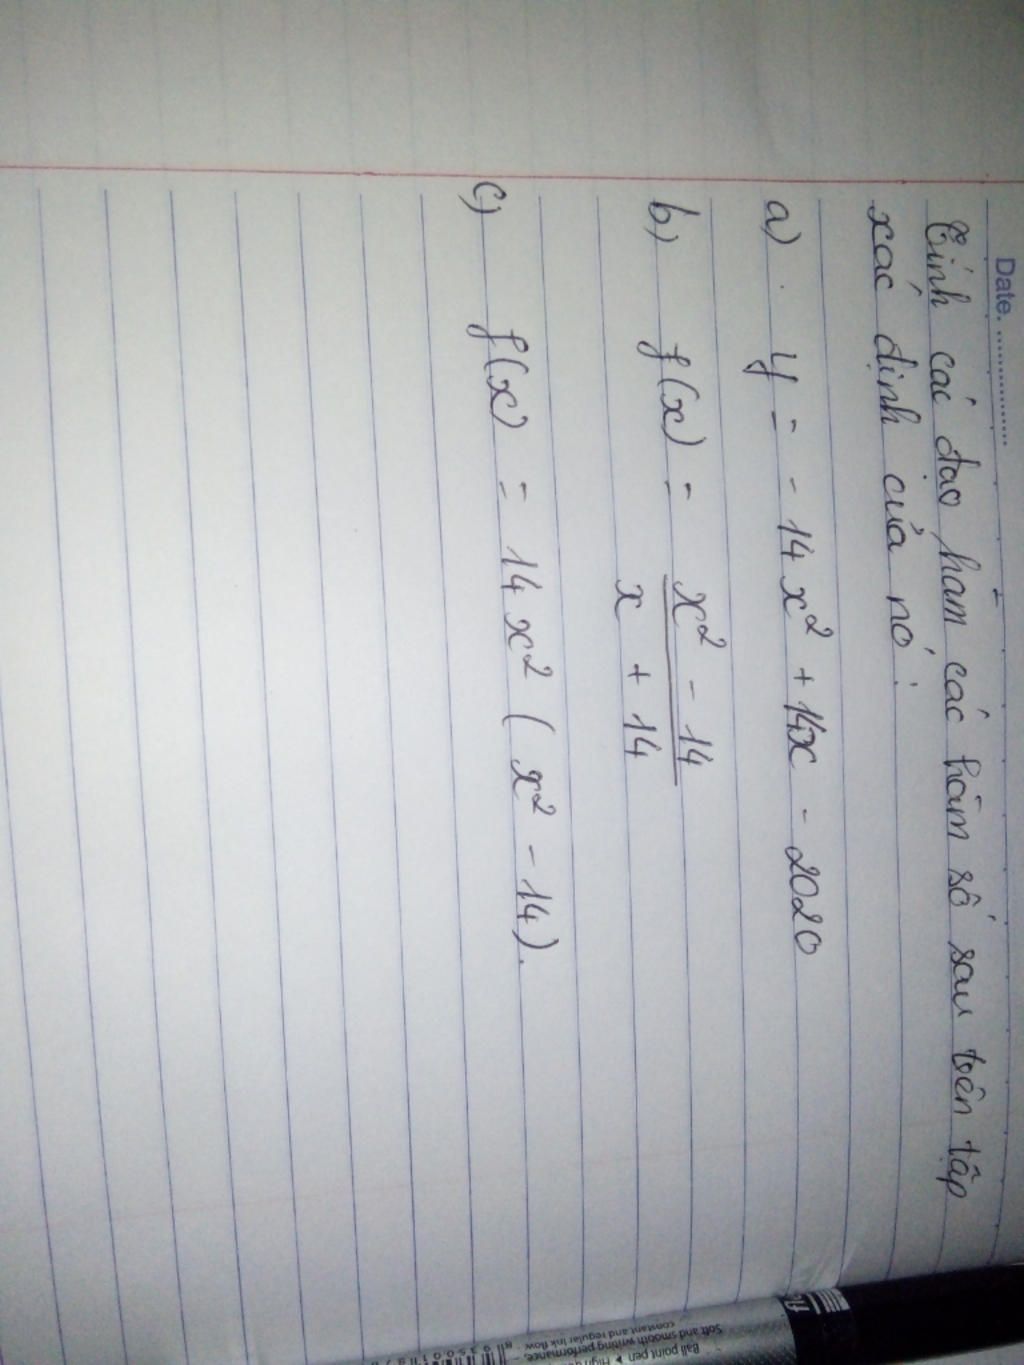 Date. ................
Tính các đạo hàm các hàm số sau trên tập
xác định của nó:
a) y = - 14x² + 14x - 2020
b) f(x) = \frac{x² - 14}{x + 14}
c) f(x) = 14x² (x² - 14).
Ball point pen
Soft and smooth writing performance,
constant and regular ink flow.